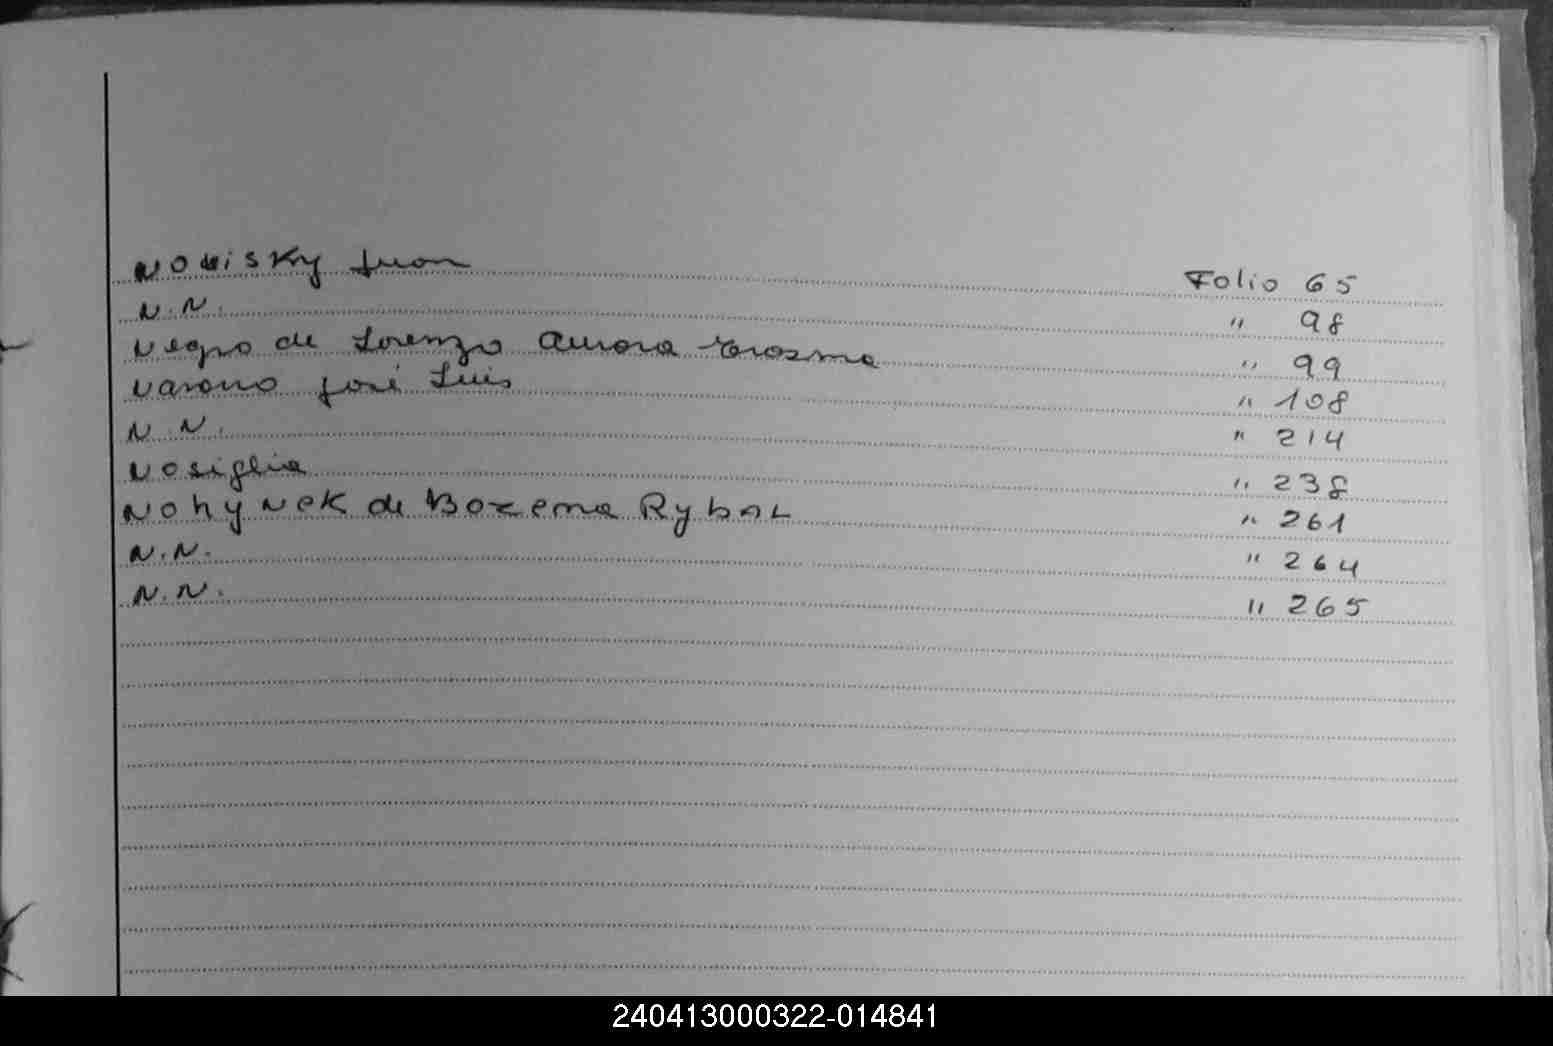 Novisky Juan Folio 65
N.N. " 98
Negro de Lorenzo Aurora Erosma " 99
Narono José Luis " 108
N.N. " 214
Nosiglia " 238
Nohynek de Bozema Rybal " 261
N.N. " 264
N.N. " 265
240413000322-014841